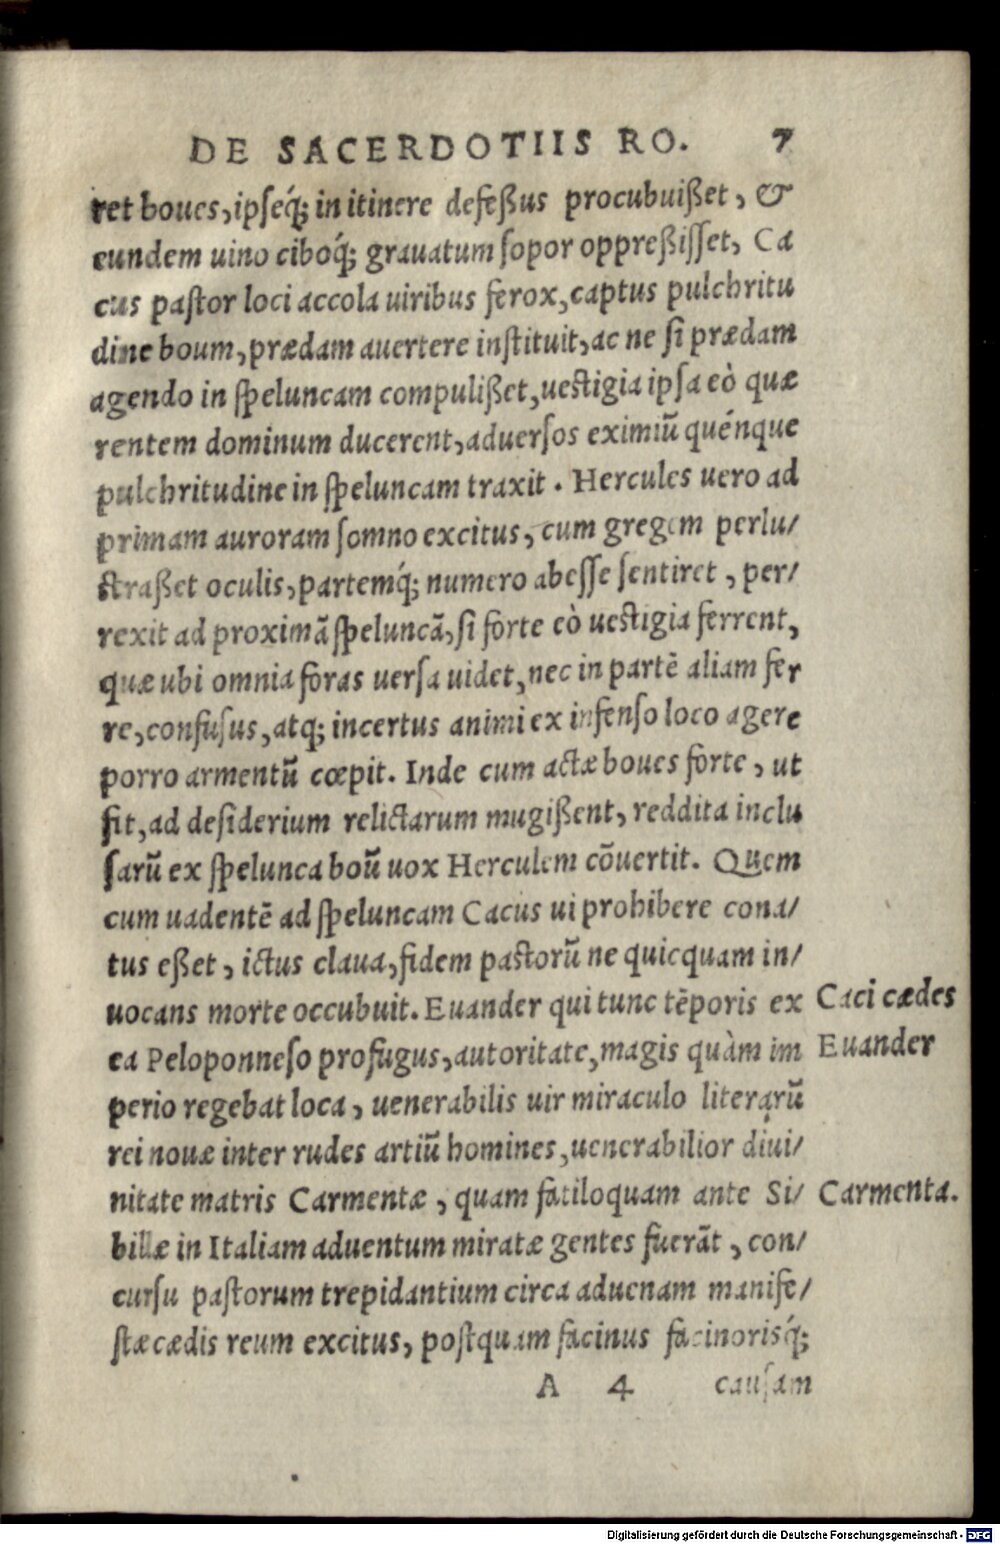 DE SACERDOTIIS RO. 7
ret boues, ipseq́; in itinere defeßus procubuißet, &
eundem uino ciboq́; grauatum sopor oppreßiſſet, Ca
cus paſtor loci accola uiribus ferox, captus pulchritu
dine boum, prædam auertere inſtituit, ac ne ſi prædam
agendo in ſpeluncam compulißet, ueſtigia ipſa eò quæ
rentem dominum ducerent, aduerſos eximiū quénque
pulchritudine in ſpeluncam traxit. Hercules uero ad
primam auroram ſomno excitus, cum gregem perlu/
ſtraßet oculis, partemq́; numero abeſſe ſentiret, per/
rexit ad proximā ſpeluncā, ſi forte eò ueſtigia ferrent,
quæ ubi omnia foras uerſa uidet, nec in partē aliam fer
re, confuſus, atq; incertus animi ex infenſo loco agere
porro armentū cœpit. Inde cum actæ boues forte, ut
fit, ad deſiderium relictarum mugißent, reddita inclu
ſarū ex ſpelunca boū uox Herculem cōuertit. Quem
cum uadentē ad ſpeluncam Cacus ui prohibere cona/
tus eßet, ictus claua, fidem paſtorū ne quicquam in/
uocans morte occubuit. Euander qui tunc tēporis ex Caci cædes
ea Peloponneſo profugus, autoritate, magis quàm im Euander
perio regebat loca, uenerabilis uir miraculo literarū
rei nouæ inter rudes artiū homines, uenerabilior diui/
nitate matris Carmentæ, quam fatiloquam ante Si/ Carmenta.
billæ in Italiam aduentum miratæ gentes fuerāt, con/
curſu paſtorum trepidantium circa aduenam manife/
ſtæ cædis reum excitus, poſtquam facinus facinorisq́;
A 4 cauſam
Digitalisierung gefördert durch die Deutsche Forschungsgemeinschaft - DFG